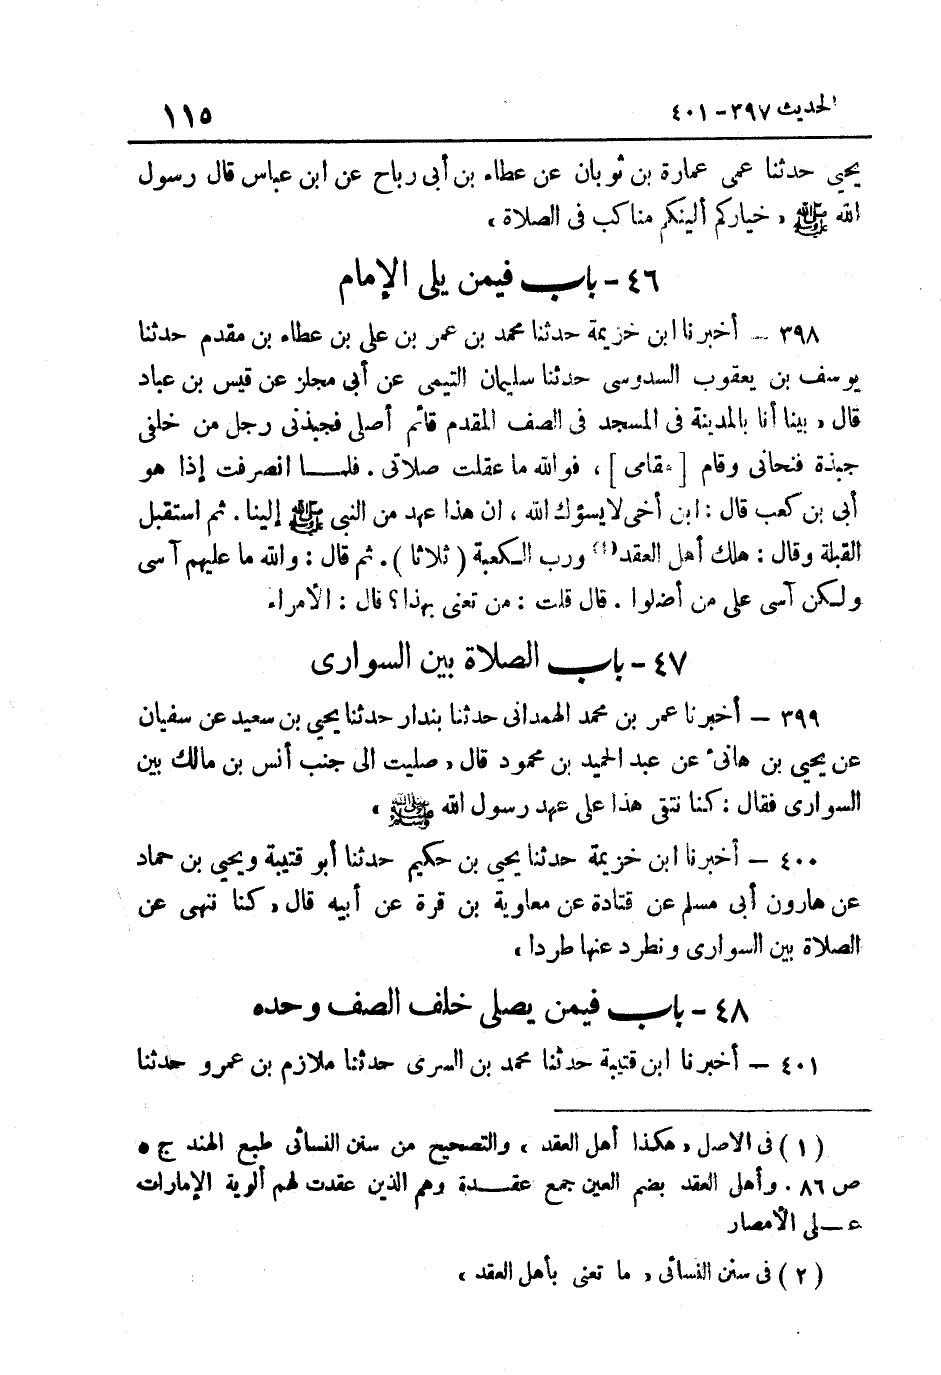 الحديث ٣٩٧ – ٤٠١ ١١٥
يحيى حدثنا عمى عمارة بن ثوبان عن عطاء بن أبى رباح عن ابن عباس قال رسول
الله ﷺ « خياركم ألينكم مناكب فى الصلاة »
٤٦ - باب فيمن يلى الإمام
٣٩٨ – أخبرنا ابن خزيمة حدثنا محمد بن عمر بن على بن عطاء بن مقدم حدثنا
يوسف بن يعقوب السدوسى حدثنا سليمان التيمى عن أبى مجلز عن قيس بن عباد
قال « بينا أنا بالمدينة فى المسجد فى الصف المقدم قائم أصلى فجبذنى رجل من خلفى
جبذة فنحانى وقام [ مقامى ] ، فوالله ما عقلت صلاتى . فلمــا انصرفت إذا هو
أبى بن كعب قال : ابن أخى لا يسوؤك الله ، ان هذا عهد من النبى ﷺ إلينا . ثم استقبل
القبلة وقال : هلك أهل العقد(١) ورب الكعبة ( ثلاثا ) . ثم قال : والله ما عليهم آسى
ولكن آسى على من أضلوا . قال قلت : من تعنى بهذا ؟ قال : الأمراء
٤٧ - باب الصلاة بين السوارى
٣٩٩ – أخبرنا عمر بن محمد الهمدانى حدثنا بندار حدثنا يحيى بن سعيد عن سفيان
عن يحيى بن هانئ عن عبد الحميد بن محمود قال « صليت الى جنب أنس بن مالك بين
السوارى فقال : كنا نتقى هذا على عهد رسول الله ﷺ »
٤٠٠ – أخبرنا ابن خزيمة حدثنا يحيى بن حكيم حدثنا أبو قتيبة ويحيى بن حماد
عن هارون أبى مسلم عن قتادة عن معاوية بن قرة عن أبيه قال « كنا ننهى عن
الصلاة بين السوارى ونطرد عنها طردا »
٤٨ - باب فيمن يصلى خلف الصف وحده
٤٠١ – أخبرنا ابن قتيبة حدثنا محمد بن السرى حدثنا ملازم بن عمرو حدثنا
( ١ ) فى الاصل « هكذا أهل العقد » والتصحيح من سنن النسائى طبع الهند ج ٥
ص ٨٦ . وأهل العقد بضم العين جمع عقــدة وهم الذين عقدت لهم ألوية الإمارات
عــلى الأمصار
( ٢ ) فى سنن النسائى « ما تعنى بأهل العقد »